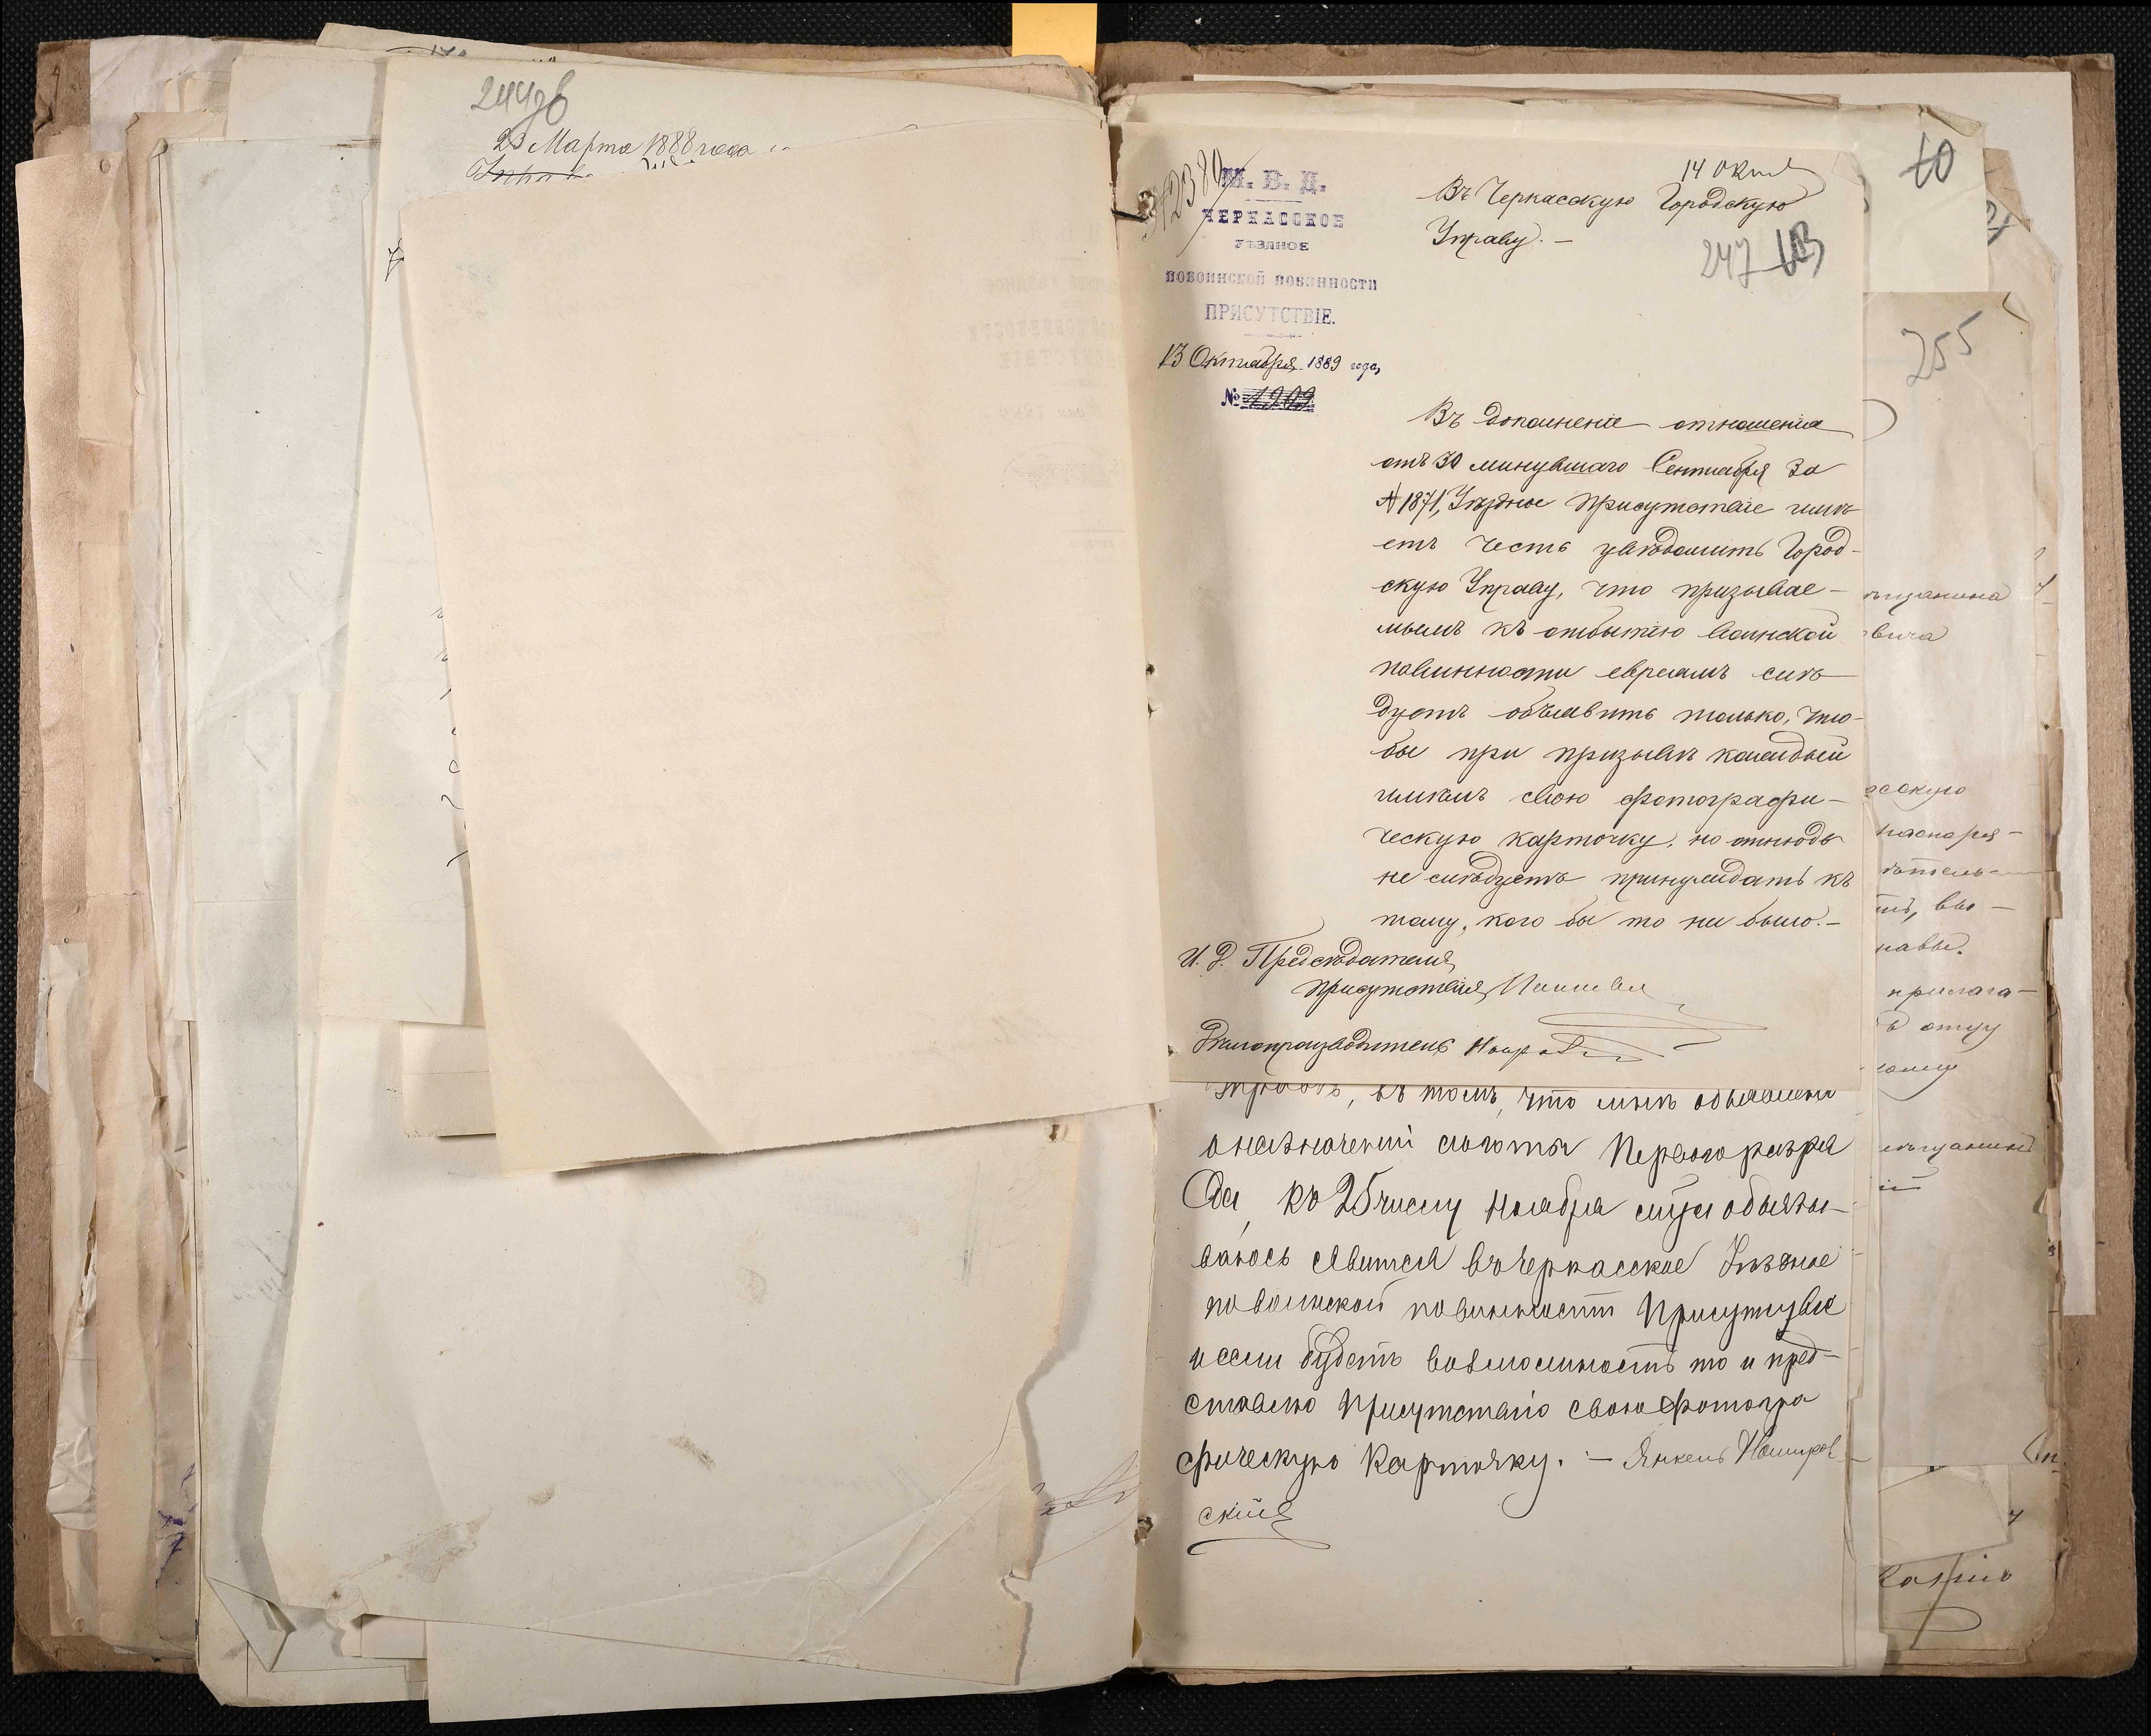 244об
23 Марта 1888 года
14 Окт
М. В. Д.
ЧЕРКАССКОЕ
УѢЗДНОЕ
ПО ВОИНСКОЙ ПОВИННОСТИ
ПРИСУТСТВІЕ.
13 Октября 1889 года,
№ 1909
Въ Черкасскую Городскую
Управу. —
247
10
255
Въ дополненіе отношенія
отъ 30 минувшаго Сентября за
№ 1871, Уѣздное Присутствіе имѣ-
етъ честь увѣдомить Город-
скую Управу, что призывае-
мымъ къ отбытію воинской
повинности евреямъ слѣ-
дуетъ объявить только, что-
бы при призывѣ каждый
имѣлъ свою фотографи-
ческую карточку, но отнюдь
не слѣдуетъ принуждать къ
тому, кого бы то ни было. —
И. д. Предсѣдателя
Присутствія
Дѣлопроизводитель
въ томъ, что мнѣ объявлено
о назначеніи льготы Перваго разря
да, къ 25 числу Ноября сего обязы-
ваюсь явится въ Черкасское Уѣздное
по воинской повинности Присутствіе
и если будетъ возможность то и пред-
ставлю Присутствію свою Фотогра
фическую Карточку. — Янкель
скій
ѣщанина
вича
сскую
распоря-
вы-
равы.
прилага-
отцу
ѣщанина